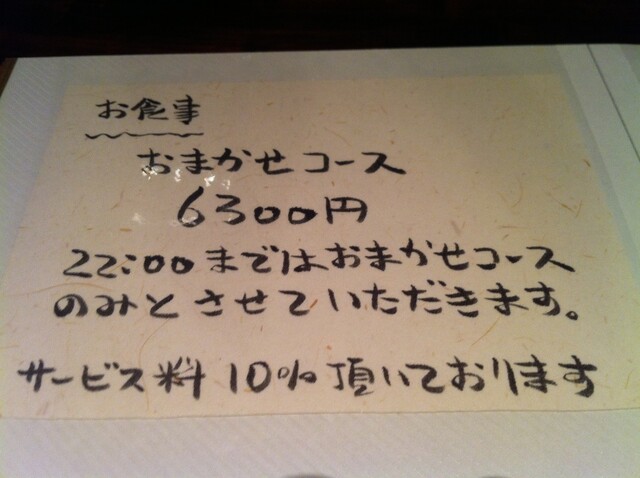 お食事
おまかせコース
6300円
22:00まではおまかせコース
のみとさせていただきます。
サービス料10%頂いております